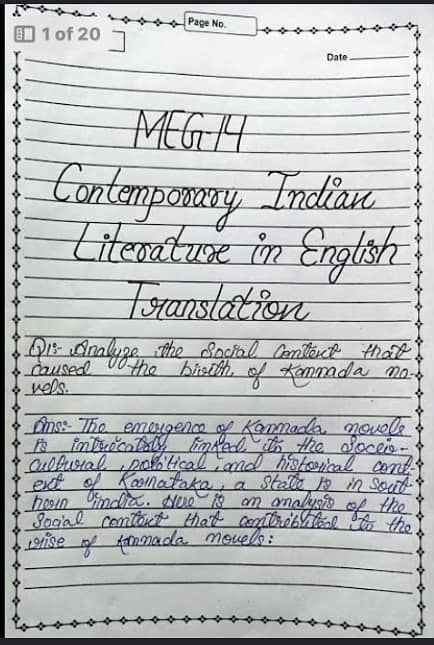 Page No.
1 of 20
Date
MEG-14
Contemporary Indian
Literature in English
Translation
Q1:- Analyze the Social Context that
caused the birth of Kannada no-
vels.
Ans:- The emergence of Kannada novels
is intricately linked to the Socio-
cultural, political, and historical cont-
ext of Karnataka, a State is in Sout-
hern india. Here is an analysis of the
Social context that contributed to the
rise of Kannada novels: